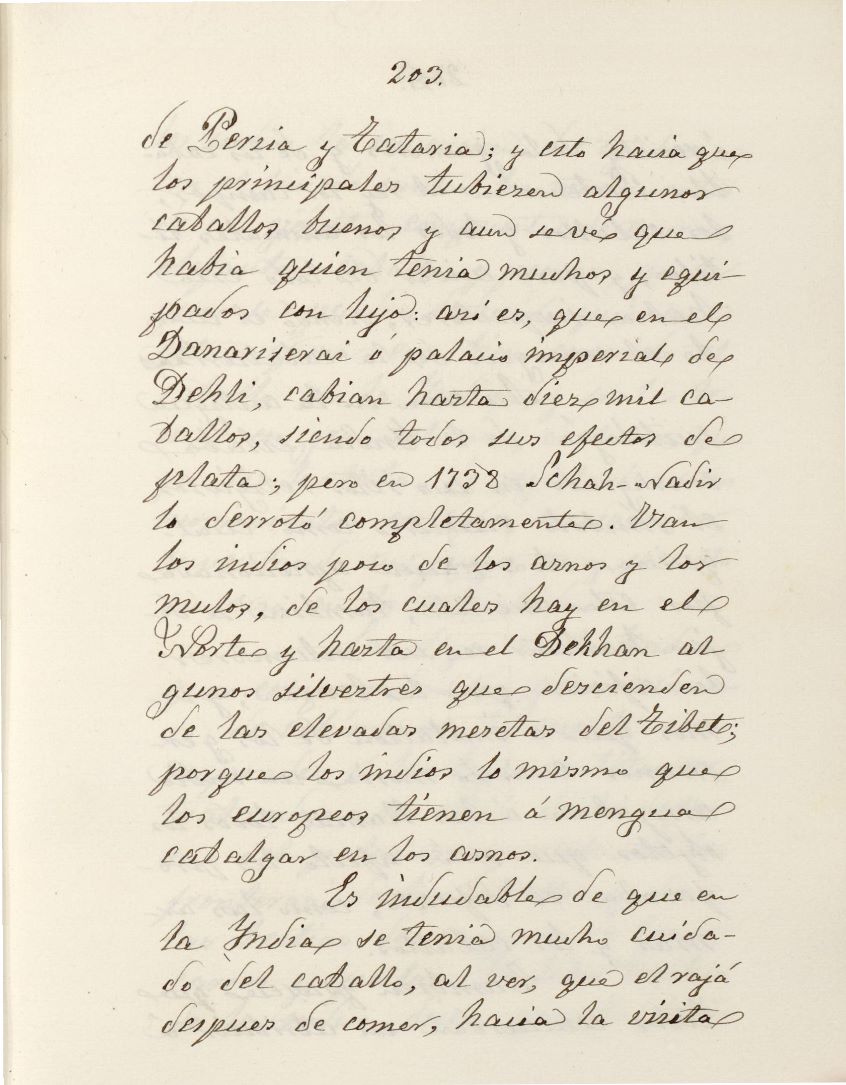 203.
de Persia y Tataria; y esto hacia que
los principales tubiesen algunos
caballos buenos y aun se vé que
habia quien tenia muchos y equi-
pados con lujo: así es, que en el
Danariserai ó palacio imperial de
Dehli, cabian hasta diez mil ca-
ballos, siendo todos sus efectos de
plata; pero en 1738 Schah-Nadir
lo derrotó completamente. Usan
los indios poco de los asnos y los
mulos, de los cuales hay en el
Norte y hasta en el Dekhan al
gunos silvestres que descienden
de las elevadas mesetas del Tibet;
porque los indios lo mismo que
los europeos tienen á mengua
cabalgar en los asnos.
Es indudable de que en
la India se tenia mucho cuida-
do del caballo, al ver, que el rajá
despues de comer, hacia la visita